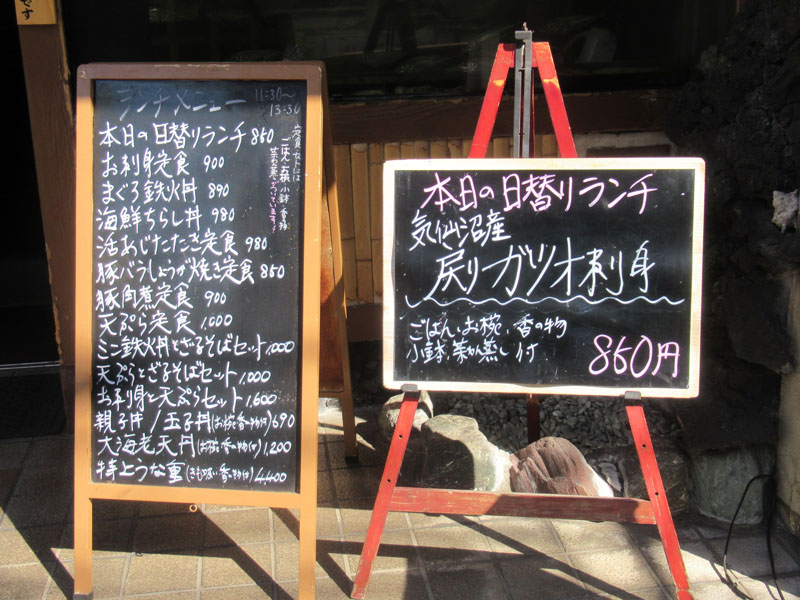 ランチメニュー 11:30〜13:30
本日の日替りランチ 850
お刺身定食 900
まぐろ鉄火丼 890
海鮮ちらし丼 980
活あじたたき定食 980
豚バラしょうが焼き定食 850
豚角煮定食 900
天ぷら定食 1,000
ミニ鉄火丼とざるそばセット 1,000
天ぷらとざるそばセット 1,000
お刺身と天ぷらセット 1,600
親子丼/玉子丼(お椀香の物付) 690
大海老天丼(お椀香の物付) 1,200
特上うな重(きも吸い香の物付) 4,400
定食セットには
ごはん お椀 小鉢 香の物
茶わん蒸しがついています!
本日の日替りランチ
気仙沼産
戻りガツオ刺身
ごはん、お椀、香の物
小鉢、茶わん蒸し付
850円